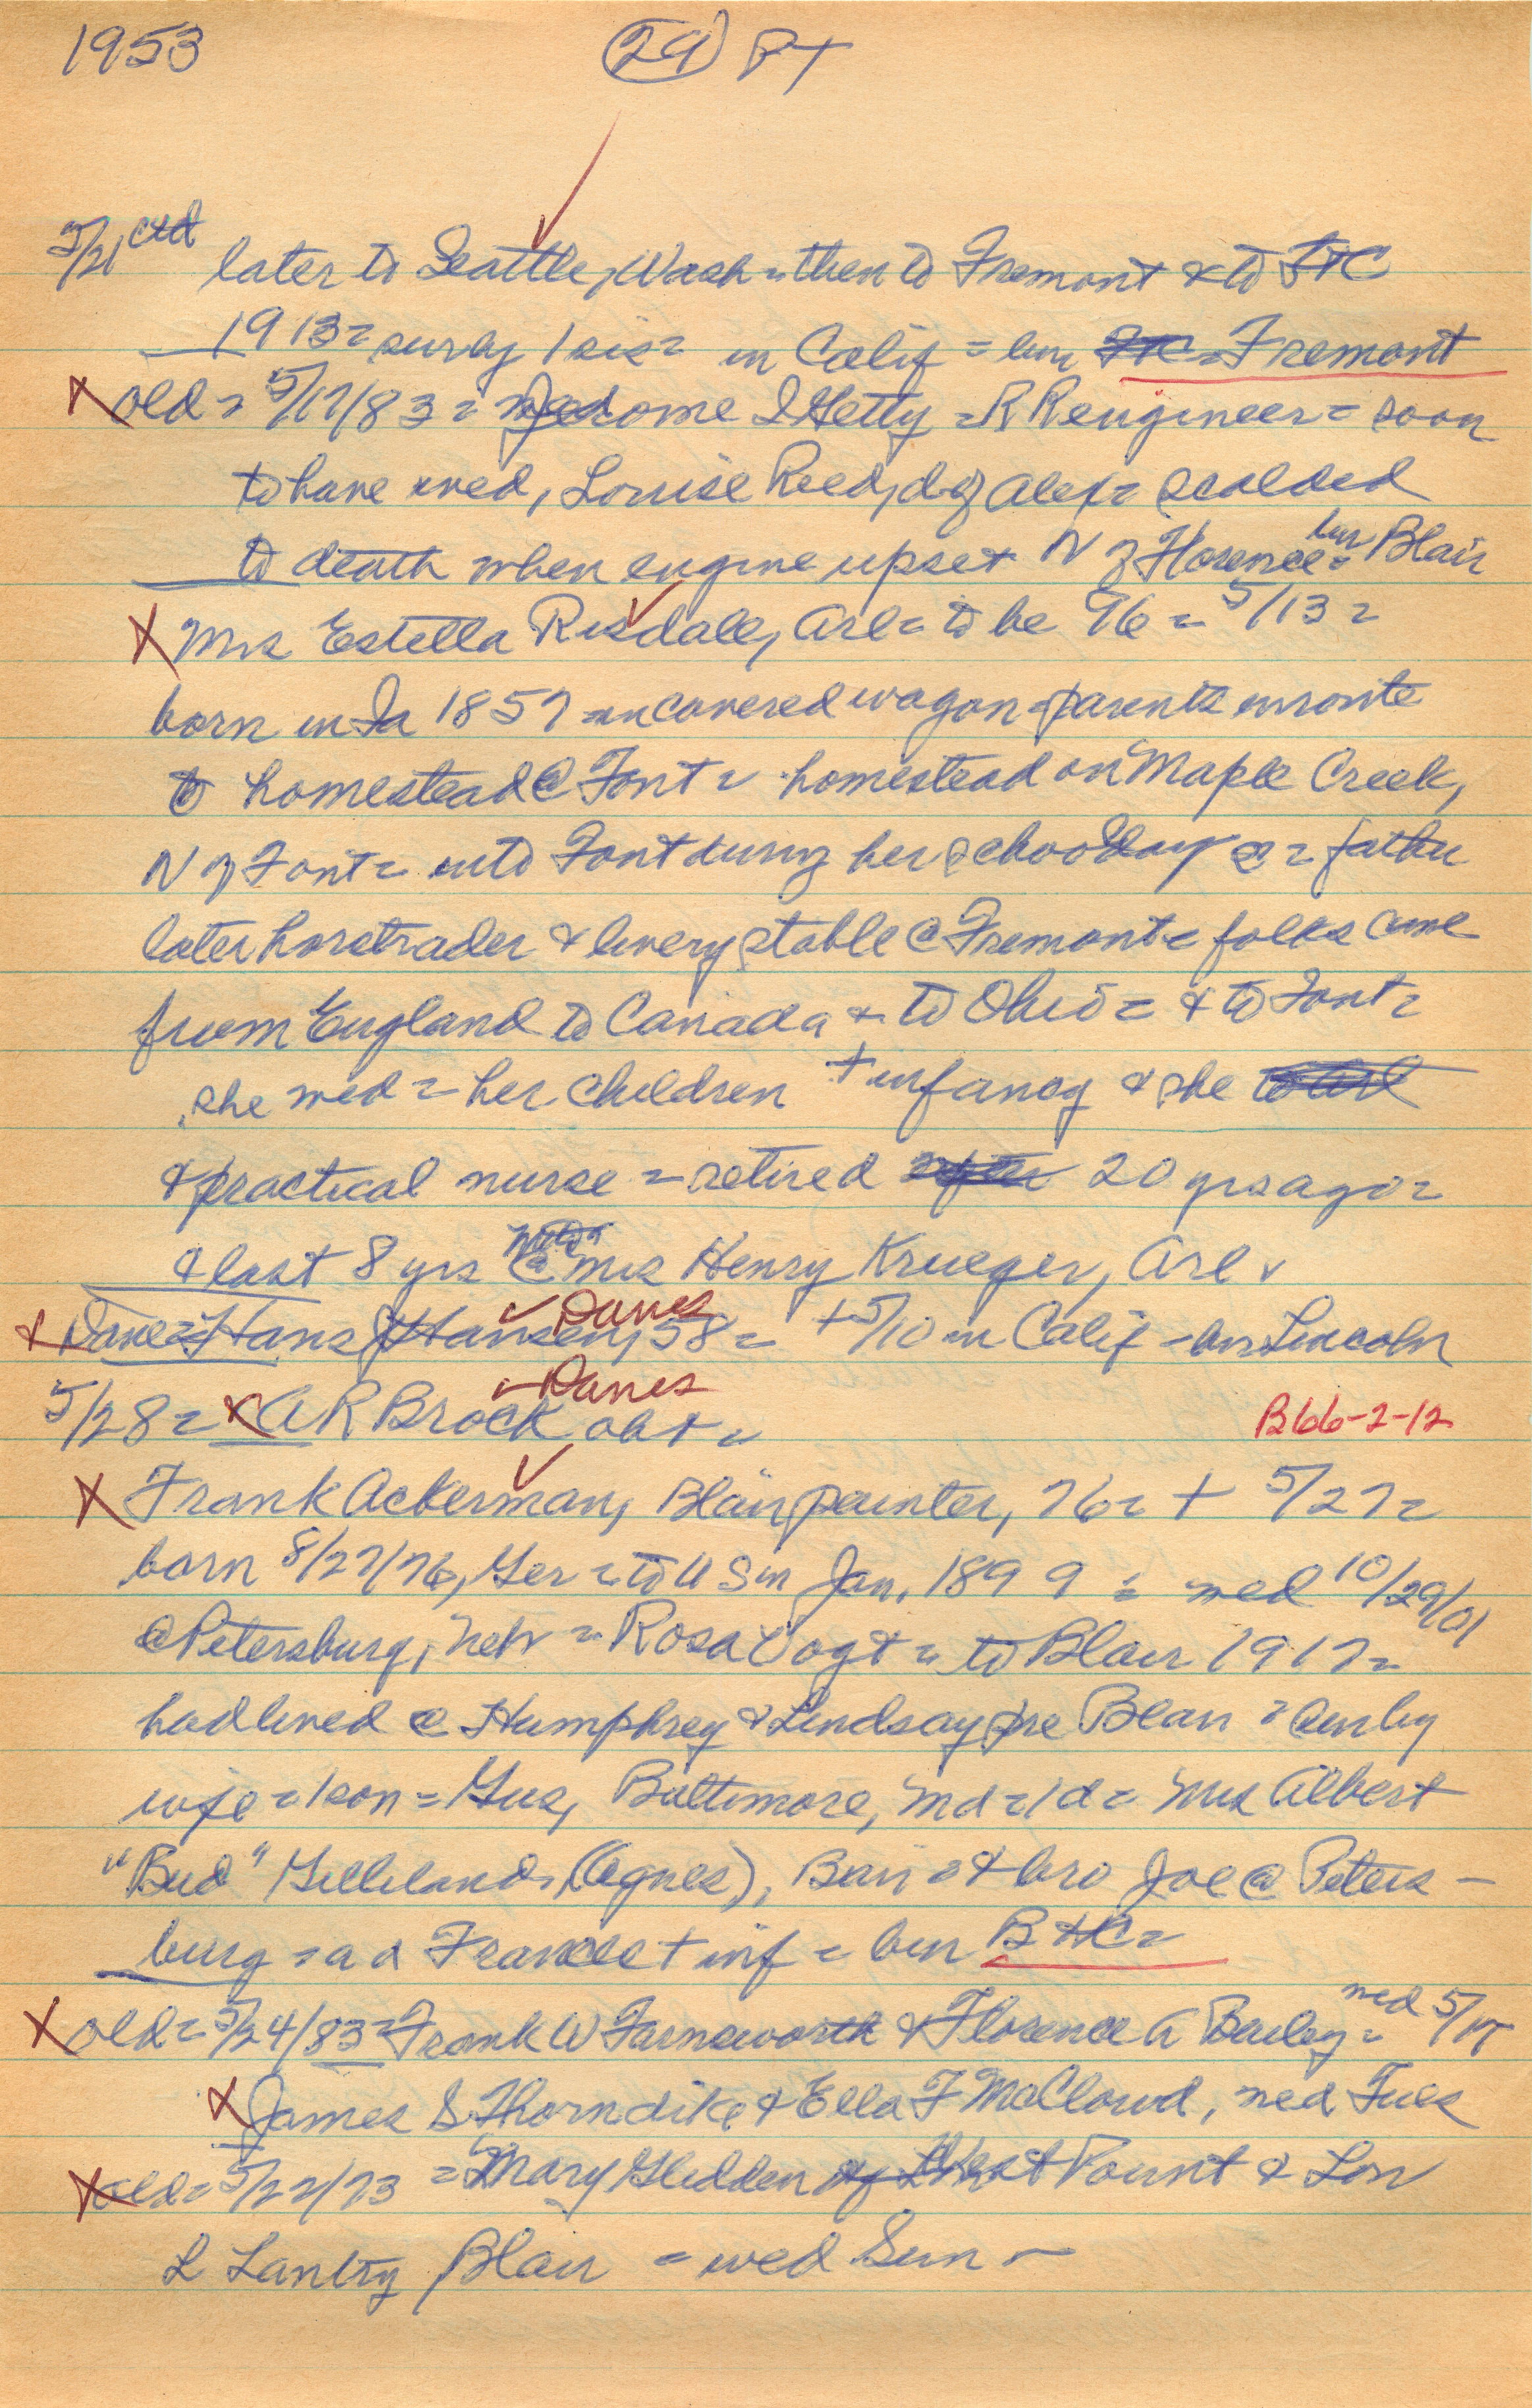 1953 (29) PT
5/21 ctd later to Seattle, Wash = then to Fremont & to FtC
1913 = surv by 1 sis = in Calif = bur FtC = Fremont
X old = 5/17/83 = Jerome S Hetty = RR engineer = soon
to have wed, Louise Reed, d of Alex = scalded
to death when engine upset N of Florence = bur Blair
X Mrs Estella Risdale, Arl = to be 96 = 5/13 =
born in Ia 1857 in covered wagon = parents enroute
to homestead @ Font = homestead on Maple Creek,
N of Font = into Font during her school days = father
later horsetrader & livery stable @ Fremont = folks came
from England to Canada & to Ohio = & to Font =
she wed = her children + infancy & she
& practical nurse = retired after 20 yrs ago =
& last 8 yrs with Mrs Henry Krueger, Arl =
X Dane = Hans J Hansen, 58 = Danes + 5/10 in Calif = bur Lincoln
5/28 = X A R Brock obt = Danes B66-2-12
X Frank Ackerman, Blair painter, 76 = + 5/27 =
born 8/27/76, Ger = to US in Jan, 1899 = wed 10/29/01
@ Petersburg, Neb = Rosa Vogt = to Blair 1917 =
had lived @ Humphrey & Lindsay pre Blair = surv by
wife = 1 son = Gus, Baltimore, Md = 1 d = Mrs Albert
"Bud" Gilleland, (Agnes), Blair = & bro Joe @ Peters-
burg = a d Frances + inf = bur B HC =
X old = 5/24/83 = Frank W Farnsworth & Florence A Bailey = wed 5/17
X James S Thorndike & Ella F McCloud, wed Tues
X old = 5/22/73 = Mary Glidden of West Point & Lon
L Lantry Blair = wed Sun -